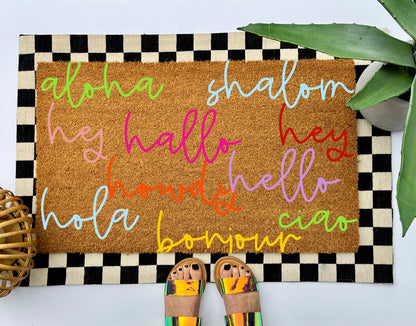 aloha shalom
hey hallo hey
howdy hello
hola ciao
bonjour